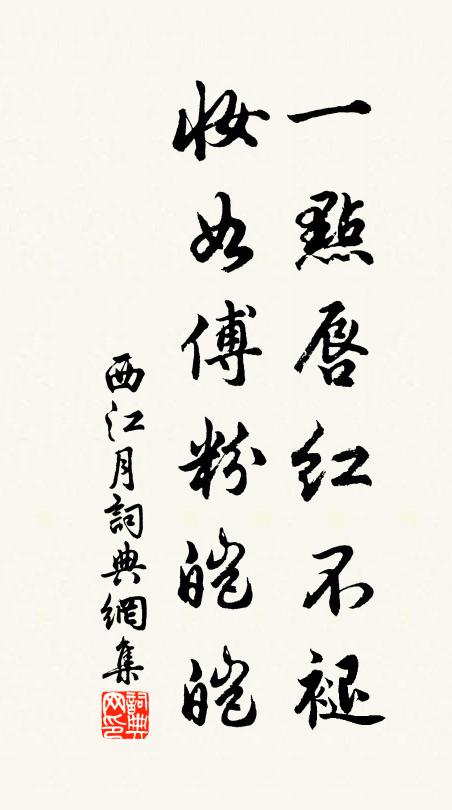 一點唇紅不褪
妝如傅粉皚皚
西江月詞典網集
詞典网印